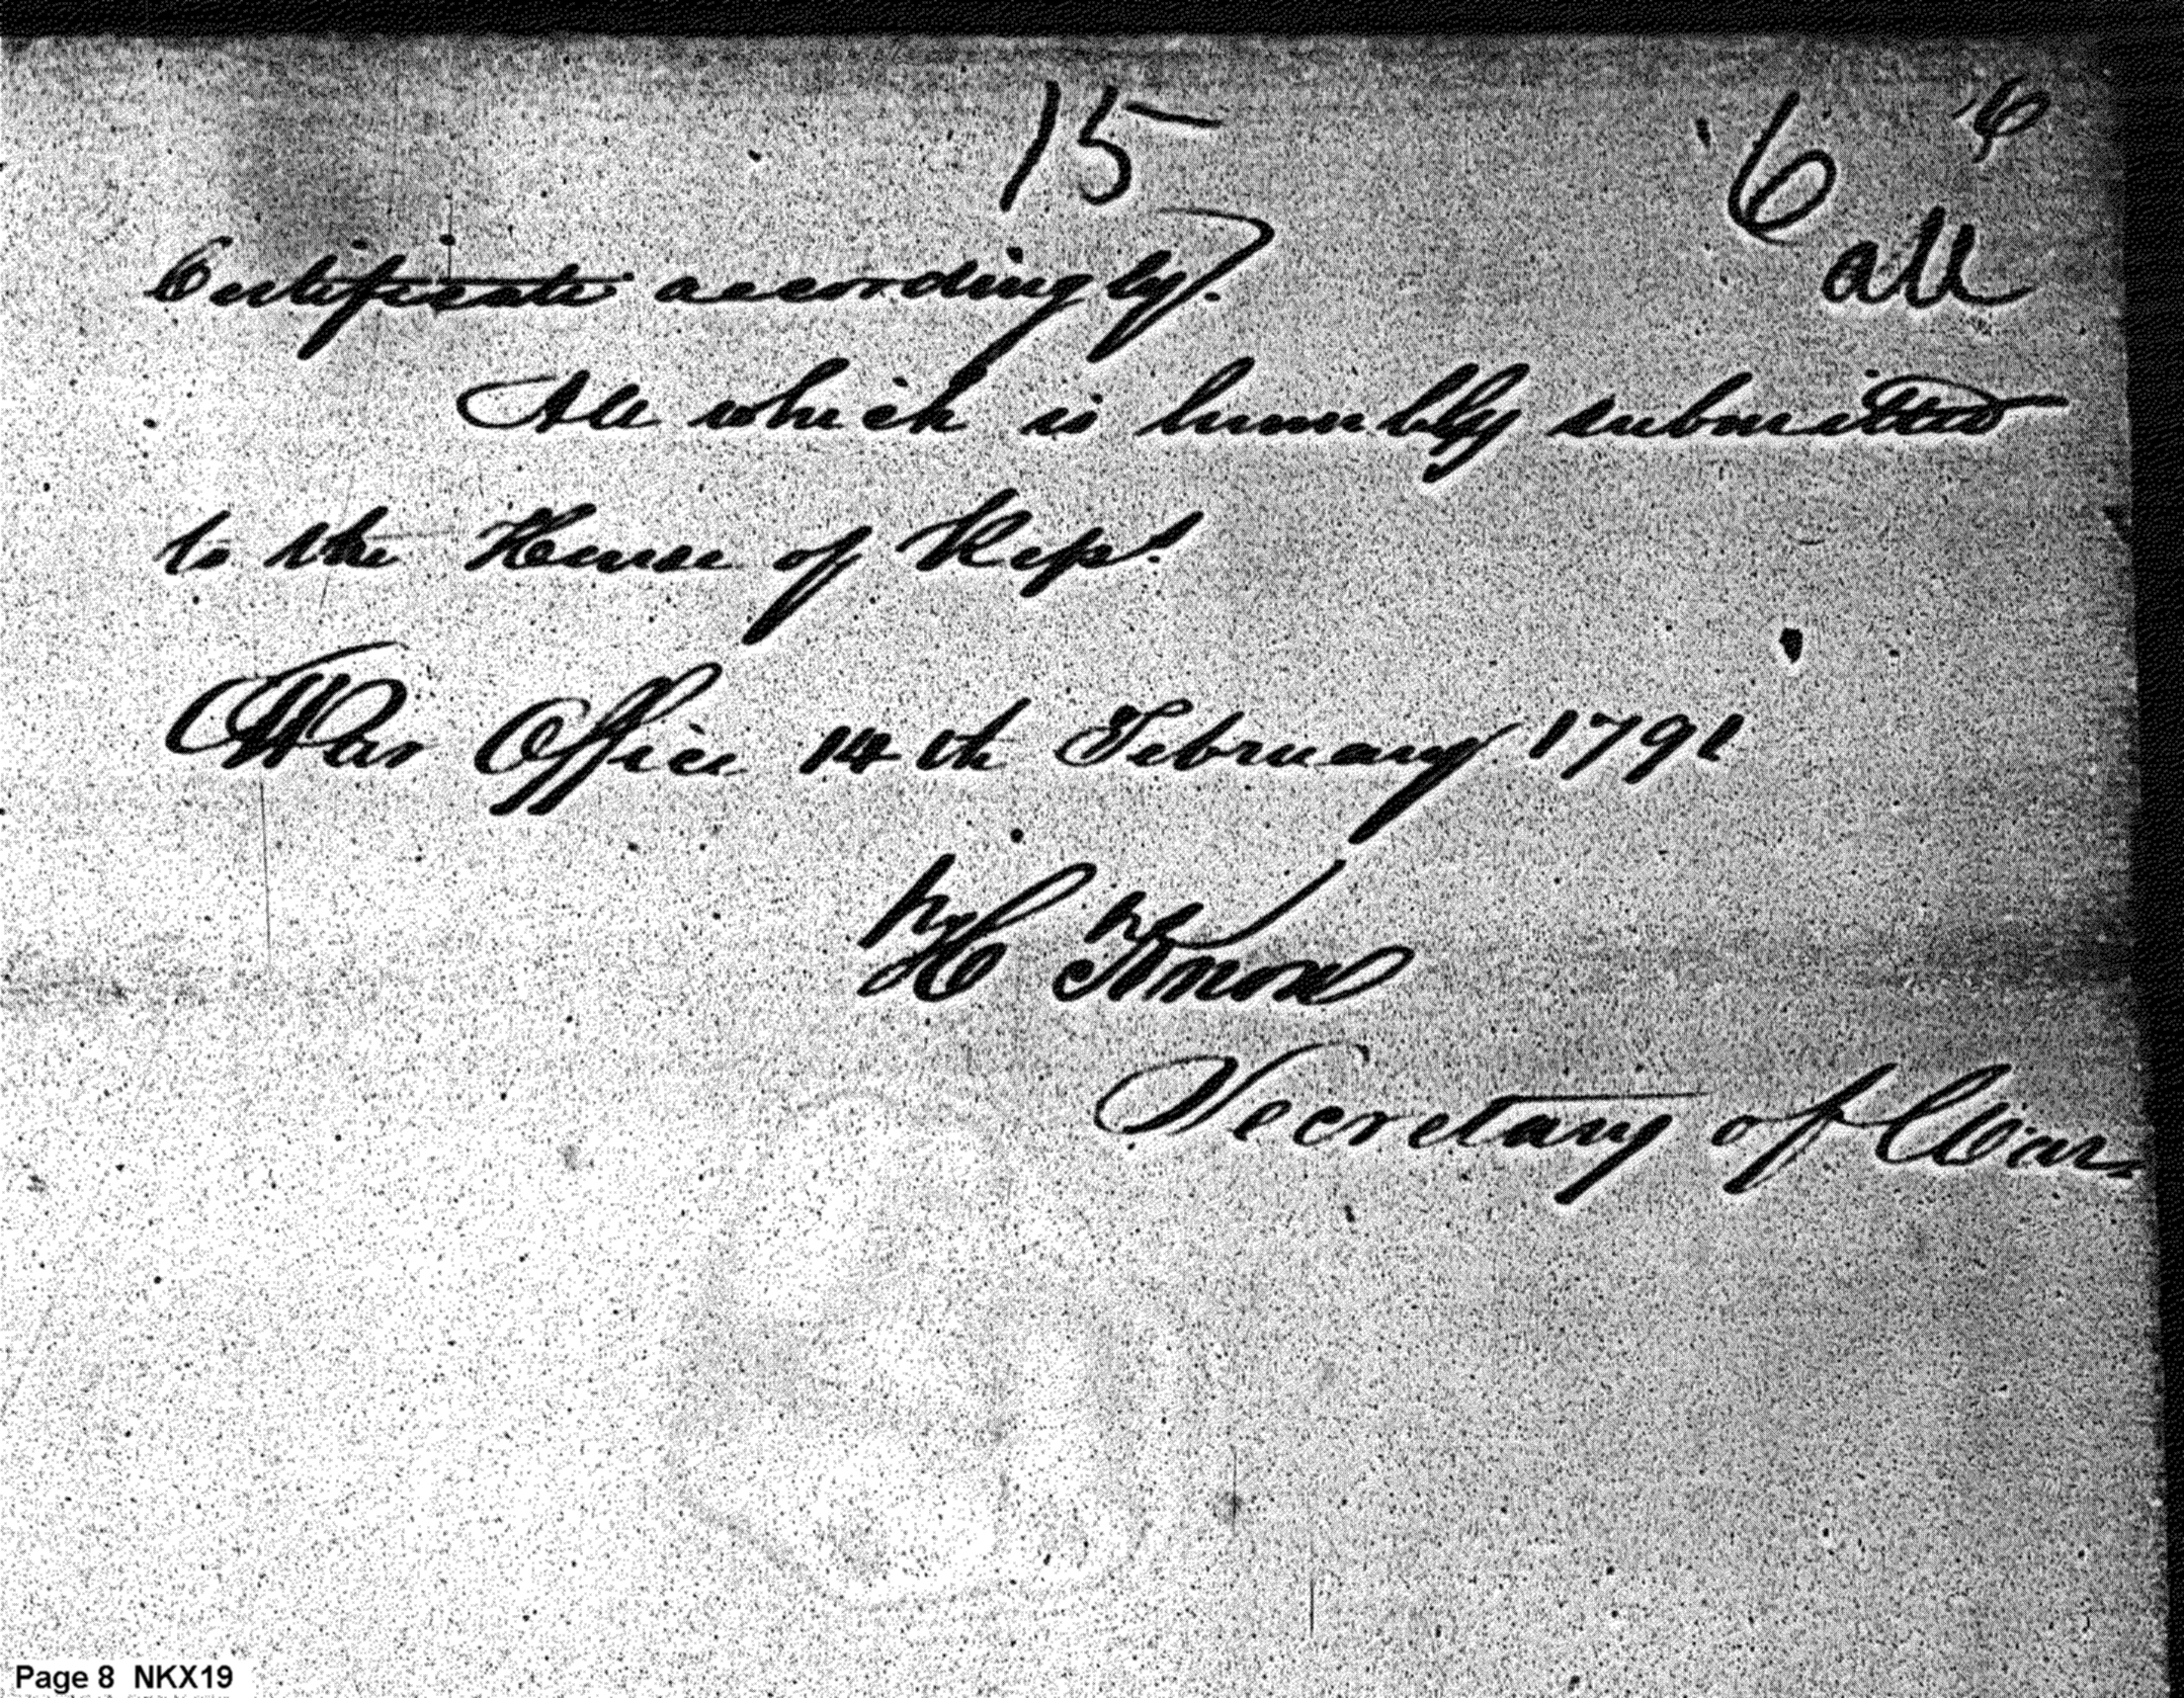 15 6 6
all
Certificate accordingly.
All which is humbly submitted
to the House of Reps.
War Office 14th February 1791
H Knox
Secretary of War.
Page 8 NKX19